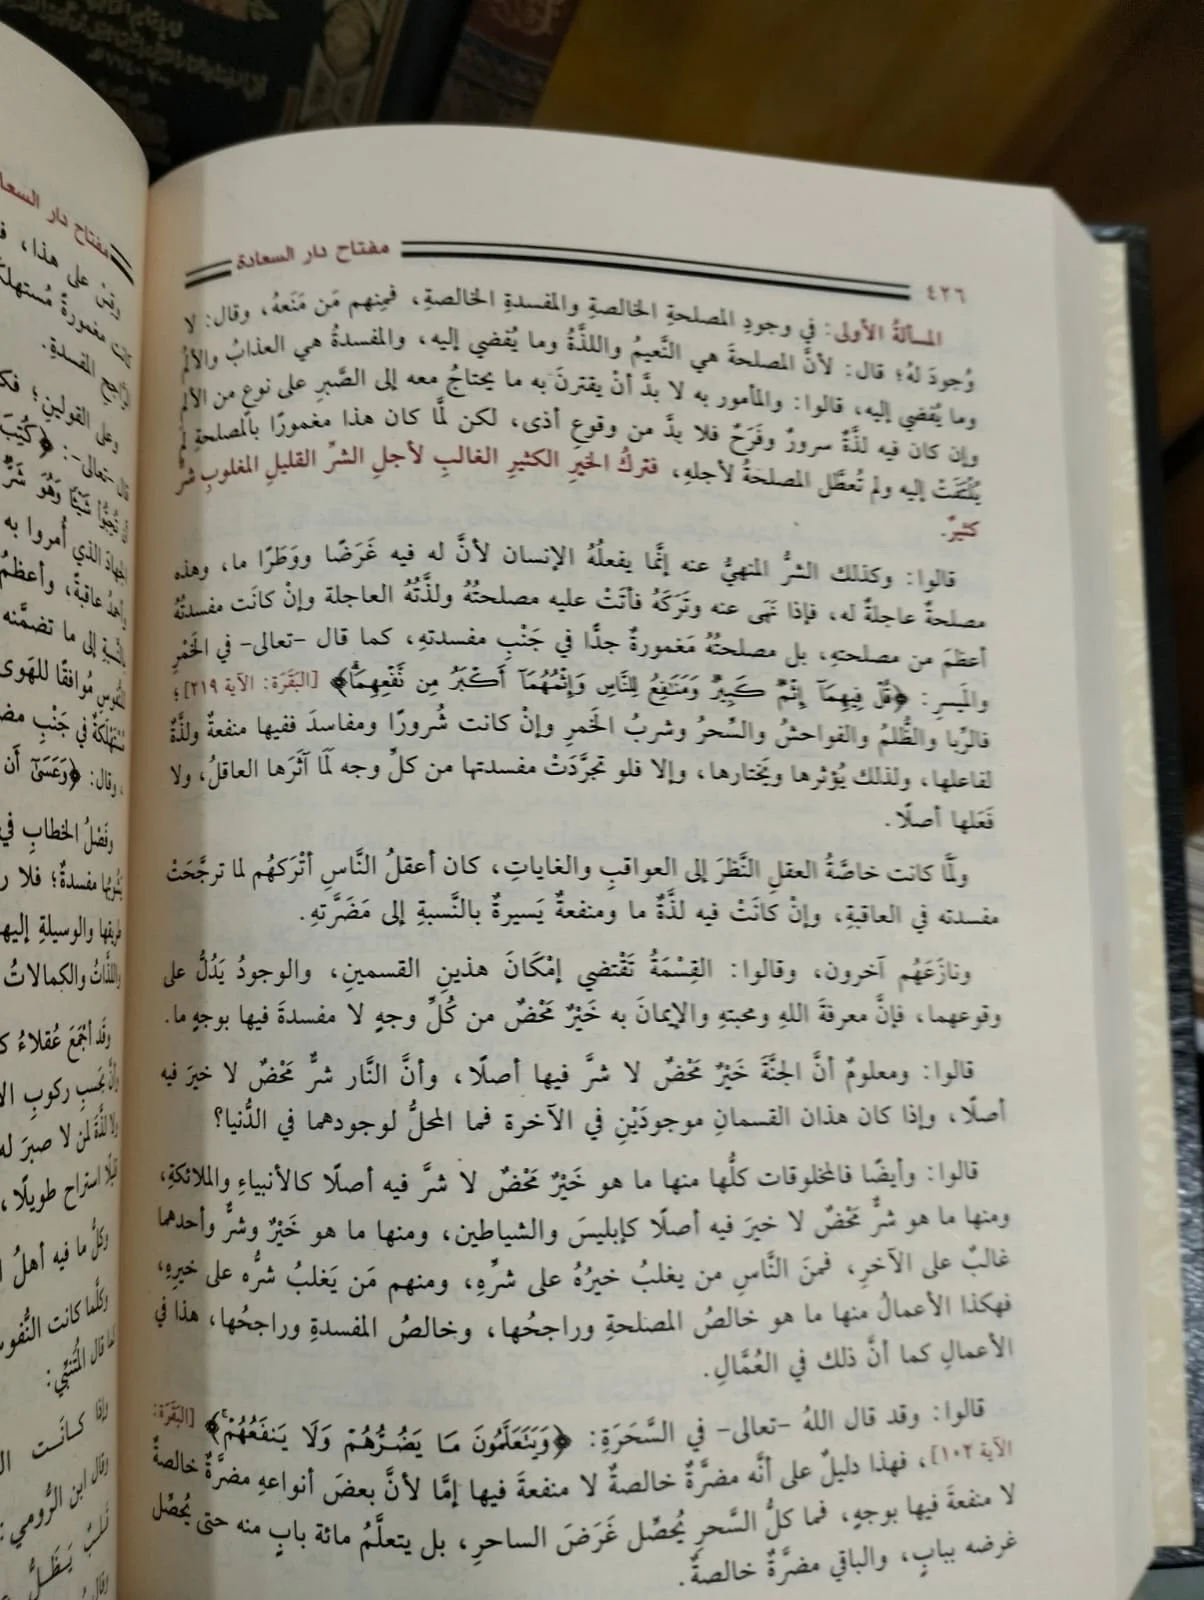 مفتاح دار السعادة
٤٢٦
المسألةُ الأولى: في وجودِ المصلحةِ الخالصةِ والمفسدةِ الخالصةِ، فمِنهم مَن مَنَعهُ، وقال: لا
وُجودَ لهُ؛ قال: لأنَّ المصلحةَ هي النَّعيمُ واللذَّةُ وما يُفضي إليه، والمفسدةُ هي العذابُ والألمُ
وما يُفضي إليه، قالوا: والمأمور به لا بدَّ أنْ يقترنَ به ما يحتاجُ معه إلى الصَّبرِ على نوعٍ من الألمِ
وإن كان فيه لذَّةٌ سرورٌ وفَرَحٌ فلا بدَّ من وقوعِ أذى، لكن لمَّا كان هذا مغمورًا بالمصلحةِ لم
يُلْتَفَتْ إليه ولم تُعطَّل المصلحةُ لأجلهِ، فتركُ الخيرِ الكثيرِ الغالبِ لأجلِ الشرِّ القليلِ المغلوبِ شرٌّ
كثيرٌ.
قالوا: وكذلك الشرُّ المنهيُّ عنه إنَّما يفعلُهُ الإنسان لأنَّ له فيه غَرَضًا ووَطَرًا ما، وهذه
مصلحةٌ عاجلةٌ له، فإذا نَهَى عنه وتَرَكَهُ فاتَتْ عليه مصلحتُهُ ولذَّتُهُ العاجلة وإنْ كانَت مفسدتُهُ
أعظمَ من مصلحتهِ، بل مصلحتُهُ مَغمورةٌ جدًّا في جَنْبِ مفسدتهِ، كما قال -تعالى- في الخَمْرِ
والمَيسرِ: ﴿قُلْ فِيهِمَآ إِثْمٌ كَبِيرٌ وَمَنَٰفِعُ لِلنَّاسِ وَإِثْمُهُمَآ أَكْبَرُ مِن نَّفْعِهِمَا﴾ [البَقَرَة: الآية ٢١٩]؛
فالرِّبا والظُّلمُ والفواحشُ والسِّحرُ وشربُ الخَمرِ وإن كانت شُرورًا ومفاسدَ ففيها منفعةٌ ولذَّةٌ
لفاعلها، ولذلك يُؤثرها ويَختارها، وإلا فلو تجرَّدَتْ مفسدتها من كلِّ وجه لَمَا آثَرَها العاقلُ، ولا
فَعَلها أصلًا.
ولمَّا كانت خاصَّةُ العقلِ النَّظرَ إلى العواقبِ والغاياتِ، كان أعقلُ النَّاسِ أتْرَكهُم لما ترجَّحَتْ
مفسدته في العاقبةِ، وإنْ كانَتْ فيه لذَّةٌ ما ومنفعةٌ يَسيرةٌ بالنَّسبةِ إلى مَضَرَّتهِ.
ونازَعَهُم آخرون، وقالوا: القِسْمَةُ تَقْتضي إمْكَانَ هذينِ القسمينِ، والوجودُ يَدُلُّ على
وقوعهما، فإنَّ معرفةَ اللهِ ومحبتهِ والإيمانَ به خَيْرٌ مَحْضٌ من كُلِّ وجهٍ لا مفسدةَ فيها بوجهٍ ما.
قالوا: ومعلومٌ أنَّ الجنَّةَ خَيْرٌ مَحْضٌ لا شرَّ فيها أصلًا، وأنَّ النَّار شرٌّ مَحْضٌ لا خيرَ فيه
أصلًا، وإذا كان هذان القسمانِ موجودَيْنِ في الآخرة فما المحلُّ لوجودهما في الدُّنيا؟
قالوا: وأيضًا فالمخلوقات كلُّها منها ما هو خَيْرٌ مَحْضٌ لا شرَّ فيه أصلًا كالأنبياءِ والملائكةِ،
ومنها ما هو شرٌّ مَحْضٌ لا خيرَ فيه أصلًا كإبليسَ والشياطين، ومنها ما هو خَيْرٌ وشرٌّ وأحدهما
غالبٌ على الآخرِ، فمنَ النَّاسِ من يغلبُ خيرُهُ على شرِّهِ، ومنهم مَن يَغلبُ شرُّه على خيرِهِ،
فهكذا الأعمالُ منها ما هو خالصُ المصلحةِ وراجحُها، وخالصُ المفسدةِ وراجحُها، هذا في
الأعمالِ كما أنَّ ذلك في العُمَّالِ.
قالوا: وقد قال اللهُ -تعالى- في السَّحَرَةِ: ﴿وَيَتَعَلَّمُونَ مَا يَضُرُّهُمْ وَلَا يَنفَعُهُمْ﴾ [البَقَرَة:
الآية ١٠٢]، فهذا دليلٌ على أنَّه مضرَّةٌ خالصةٌ لا منفعةَ فيها إمَّا لأنَّ بعضَ أنواعهِ مضرَّةٌ خالصةٌ
لا منفعةَ فيها بوجهٍ، فما كلُّ السَّحرِ يُحصِّل غَرَضَ الساحرِ، بل يتعلَّمُ مائة بابٍ منه حتى يُحصِّل
غرضه ببابٍ، والباقي مضرَّةٌ خالصةٌ.
مفتاح دار السعا
كانت مغمورةً مُستهلَكَ
المفسدةِ.
وعلى القولينِ؛ فكـ
الجهادَ الذي أُمروا به
عاقبةً، وأعظمُ
إلى ما تضمَّنه
مُوافقًا للهَوى
في جَنْبِ
وقال: ﴿وَعَسَىٰٓ أَن
وفَصْلُ الخطابِ في
مفسدةٌ؛ فلا
طريقها والوسيلةِ إليها
واللذَّاتُ والكمالاتُ
وقَد أجْمَعَ عُقلاءُ
ركوبِ
لمن لا صبرَ له
استراح طويلًا،
وكلُّ ما فيه أهلُ
وكلَّما كانت النُّفوس
كما قال المُتنبِّي:
وإذا كانَت
وقال ابن الرُّومي